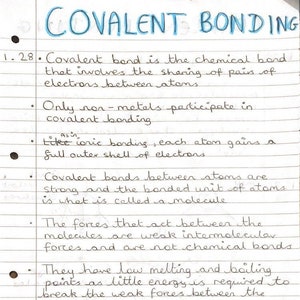 COVALENT BONDING
1.28 • Covalent bond is the chemical bond
that involves the sharing of pairs of
electrons between atoms
• Only non-metals participate in
covalent bonding
as in
• Like ionic bonding, each atom gains a
full outer shell of electrons
• Covalent bonds between atoms are
strong and the bonded unit of atoms
is what is called a molecule
• The forces that act between the
molecules are weak intermolecular
forces and are not chemical bonds
• They have low melting and boiling
points as little energy is required to
break the weak forces between the